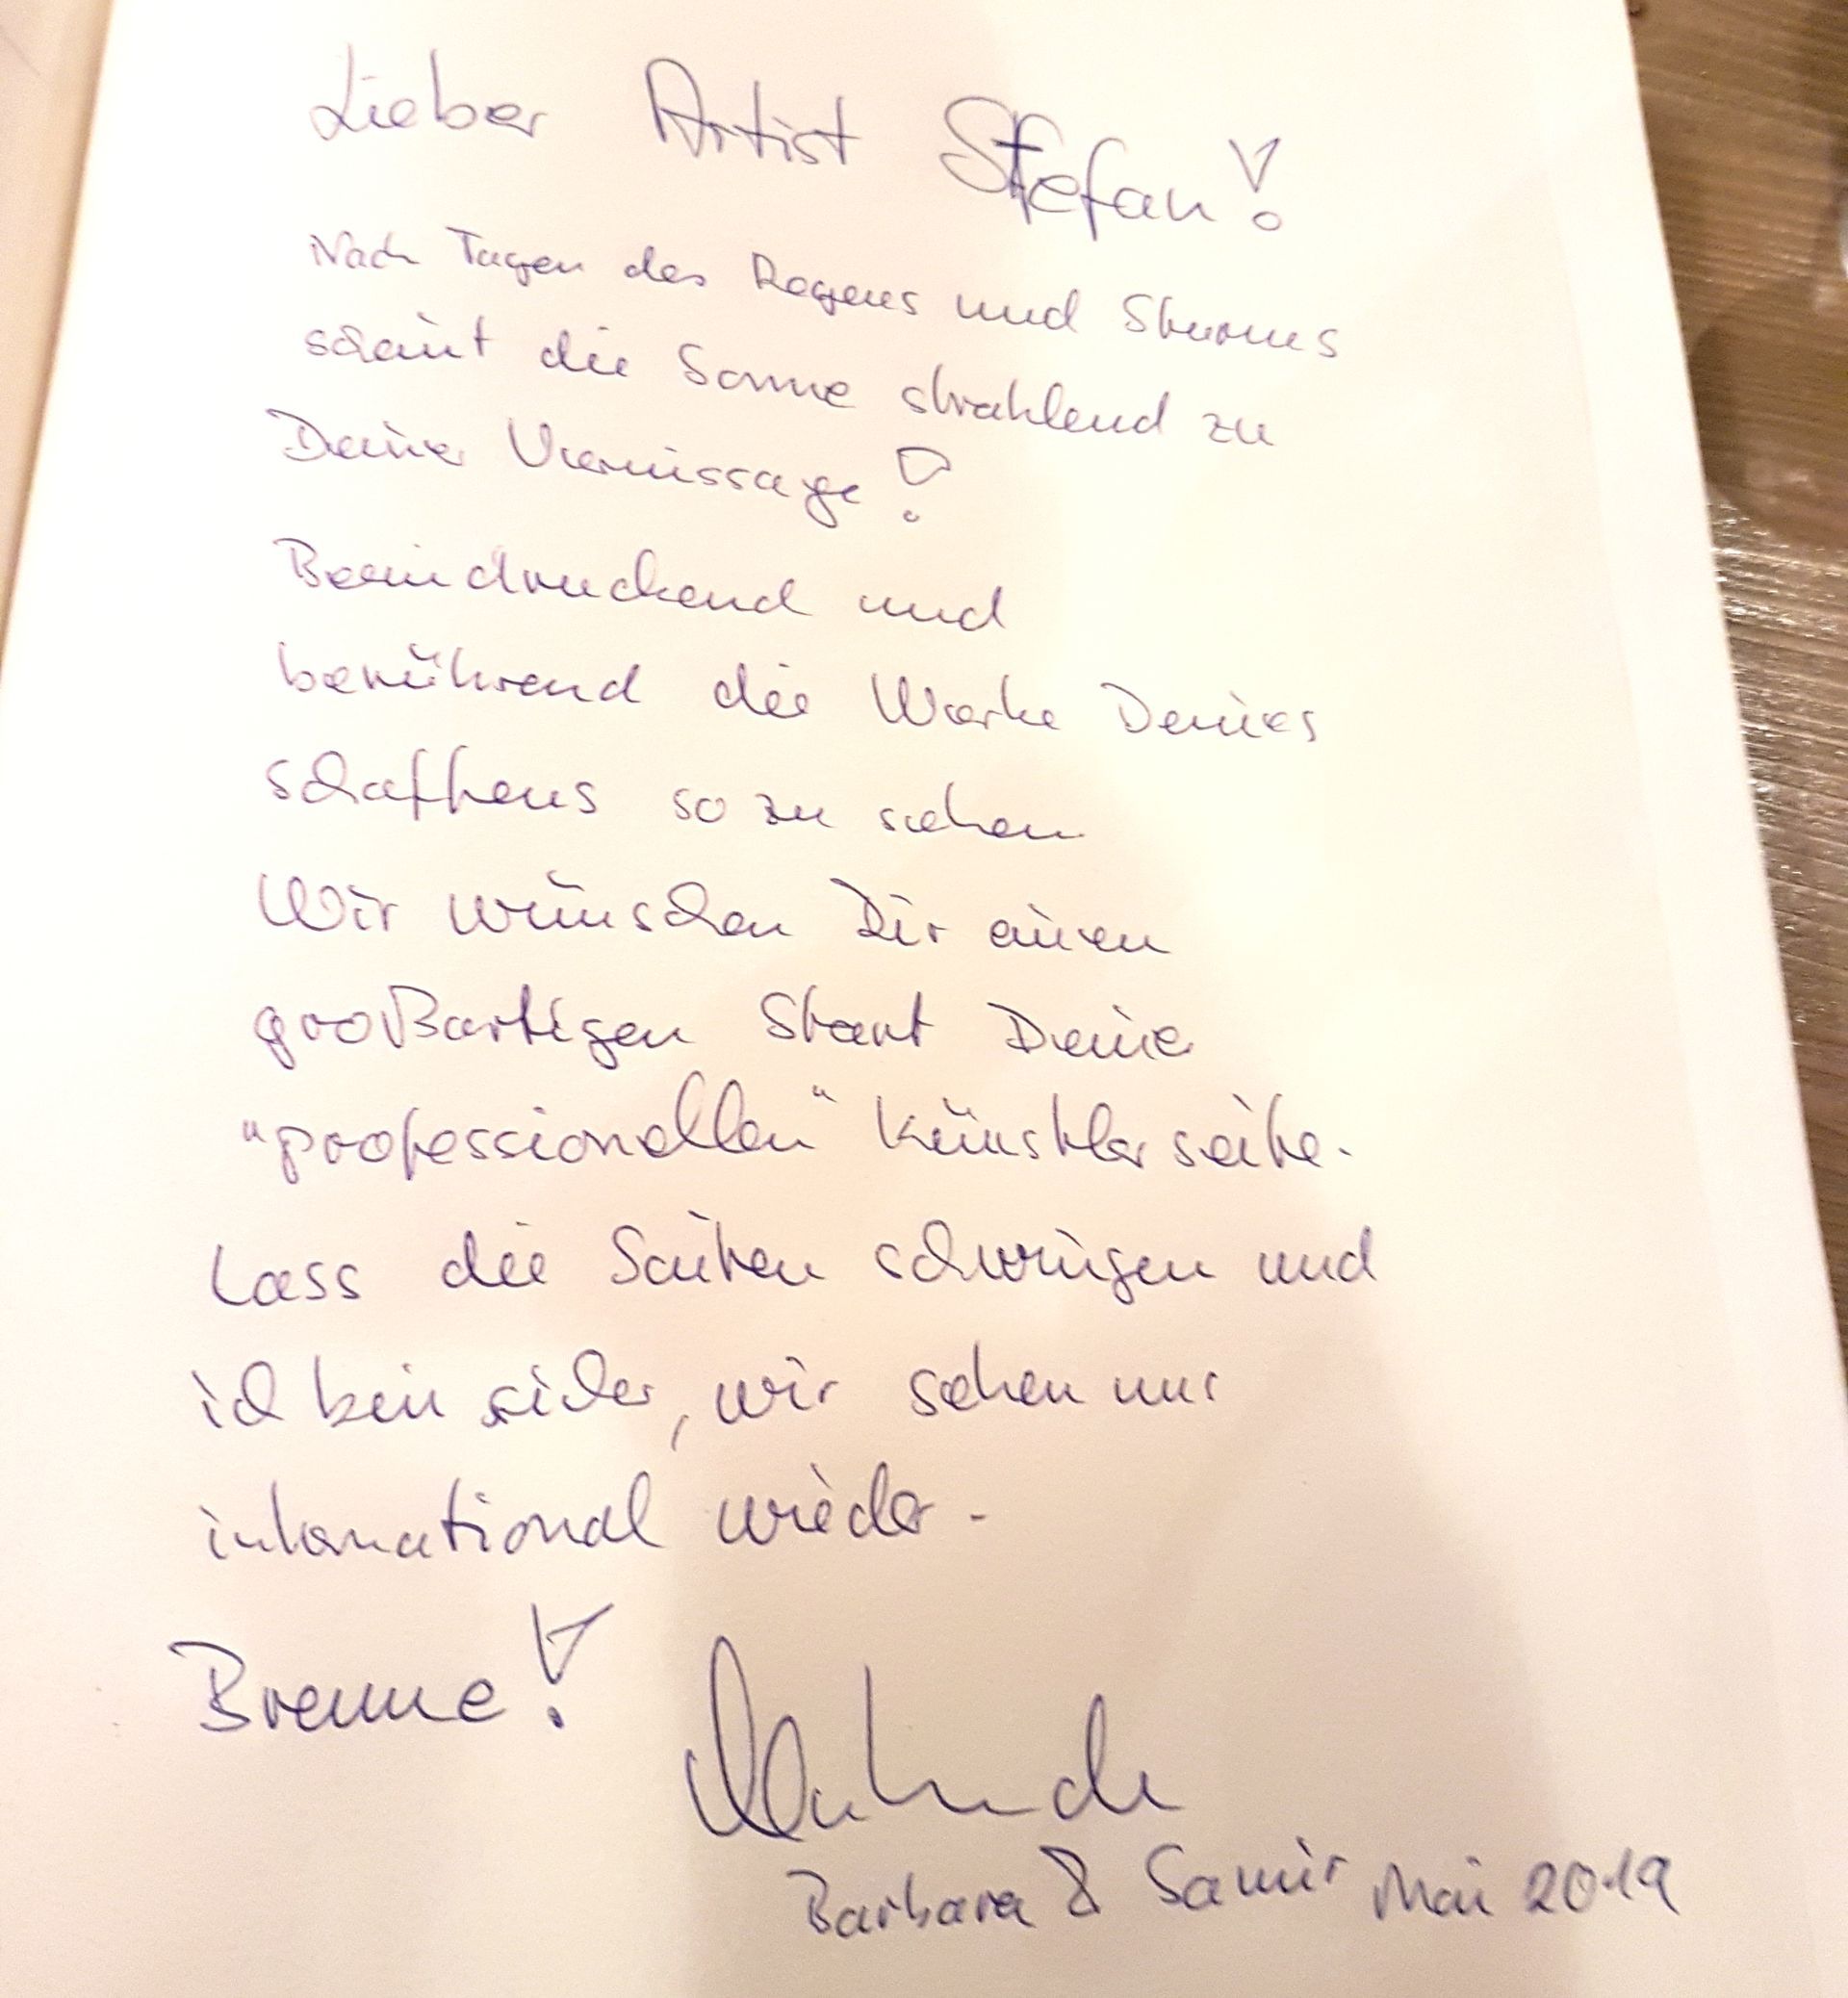 Lieber Artist Stefan!
Nach Tagen des Regens und Sturmes
scheint die Sonne strahlend zu
Deiner Vernissage!
Beeindruckend und
berührend die Werke Deines
schaffens so zu sehen
Wir wünschen Dir einen
großartigen Start Deiner
"professionellen" Künstlerseite.
Lass die Saiten schwingen und
ich bin sicher, wir sehen uns
international wieder.
Brenne!
Barbara & Samir Mai 2019